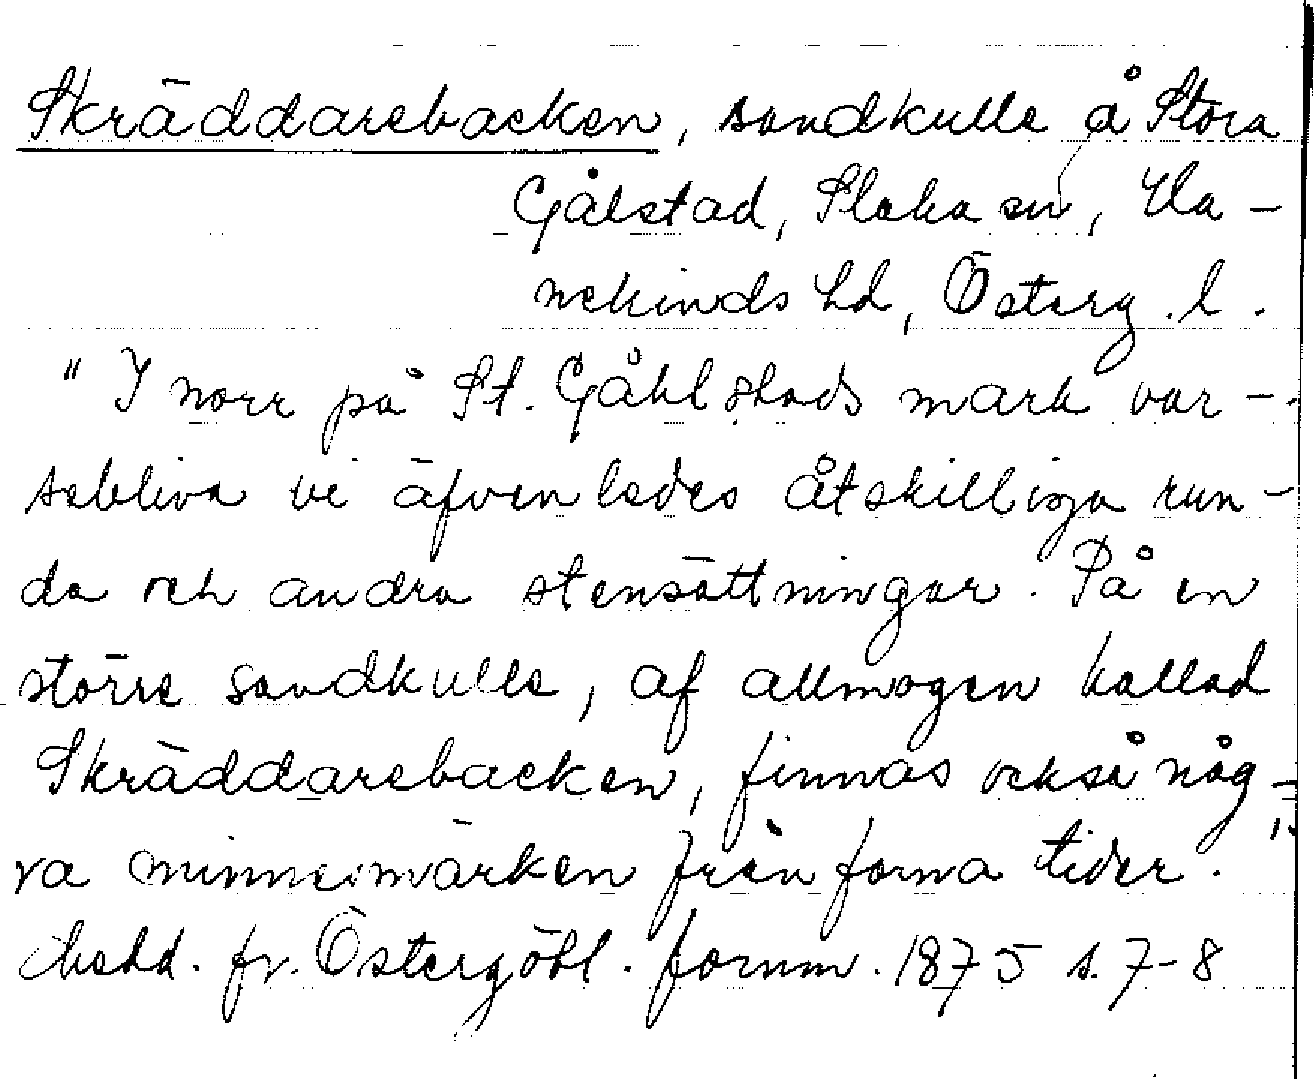 Skräddarebacken, sandkulle å Stora
Gålstad, Slaka sn, Ha-
nekinds hd, Österg. l.
"I norr på St. Gåhlstads mark var-
sebliva vi äfvenledes åtskilliga run-
da och andra stensättningar. På en
större sandkulle, af allmogen kallad
Skräddarebacken, finnas också någ-
ra minnesmärken från forna tider.
Medd. fr. Östergötl. fornm. 1875 s. 7-8